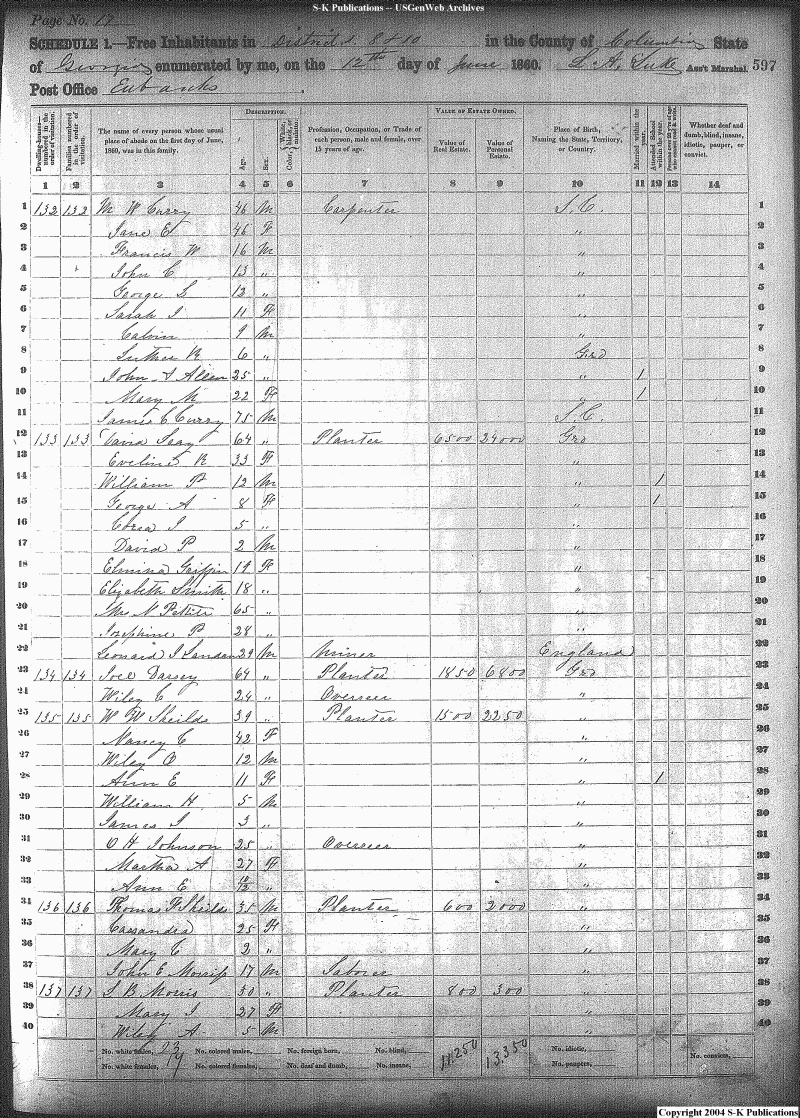 S-K Publications -- USGenWeb Archives
Page No. 17
SCHEDULE 1.—Free Inhabitants in Districts 8 & 10 in the County of Columbia State
of Georgia enumerated by me, on the 12th day of June 1860. Ass't Marshal. 597
Post Office Eubanks
DESCRIPTION. VALUE OF ESTATE OWNED.
Dwelling-houses—numbered in the order of visitation. Families numbered in the order of visitation. The name of every person whose usual place of abode on the first day of June, 1860, was in this family. Age. Sex. Color, White, black, or mulatto. Profession, Occupation, or Trade of each person, male and female, over 15 years of age. Value of Real Estate. Value of Personal Estate. Place of Birth, Naming the State, Territory, or Country. Married within the year. Attended School within the year. Persons over 20 y'rs of age who cannot read & write. Whether deaf and dumb, blind, insane, idiotic, pauper, or convict.
1 2 3 4 5 6 7 8 9 10 11 12 13 14
1 132 132 M W Curry 46 M Carpenter S.C 1
2 Jane E 46 F " 2
3 Francis W 16 M " 3
4 John C 13 " " 4
5 George L 12 " " 5
6 Sarah J 11 F " 6
7 Calvin 9 M " 7
8 Luther R 6 " Geo 8
9 John A Allen 25 " " 1 9
10 Mary M 22 F " 1 10
11 James C Curry 75 M S.C 11
12 133 133 David Seay 64 " Planter 6500 24000 Geo 12
13 Eveline R 33 F " 13
14 William P 12 M " 1 14
15 George A 8 F " 1 15
16 J 5 " " 16
17 David P 2 M " 17
18 Elmina Griffin 19 F " 18
19 Elizabeth Smith 18 " " 19
20 Mrs N 65 " " 20
21 Josephine P 28 " " 21
22 Leonard J 29 M Miner England 22
23 134 134 Joel Darsey 64 " Planter 1850 6800 Geo 23
24 Wiley C 24 " Overseer " 24
25 135 135 W W Sheilds 39 " Planter 1500 2250 " 25
26 Nancy C 42 F " 26
27 Wiley O 12 M " 27
28 Ann E 11 F " 1 28
29 William H 5 M " 29
30 James J 3 " " 30
31 O H Johnson 25 " Overseer " 31
32 Martha A 27 F " 32
33 Ann E 10/12 " " 33
34 136 136 Thomas F Sheilds 35 M Planter 600 2000 " 34
35 Cassandra 25 F " 35
36 Mary C 2 " " 36
37 John E Morris 17 M Laborer " 37
38 137 137 S B Morris 30 " Planter 800 300 " 38
39 Mary J 27 F " 39
40 Wiley A 5 M " 40
No. white males, 23 No. colored males, No. foreign born, No. blind, 11,250 13,350 No. idiotic, No. convicts,
No. white females, 17 No. colored females, No. deaf and dumb, No. insane, No. paupers,
Copyright 2004 S-K Publications